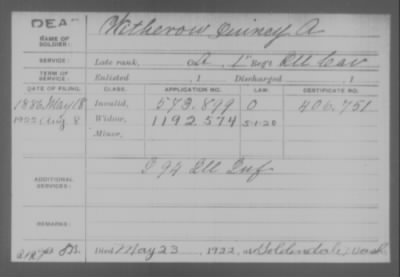 DEA
NAME OF SOLDIER: Witherow, Quincy A
SERVICE: Late rank, Co. A, 1" Reg't Ill Cav
TERM OF SERVICE: Enlisted , 1 Discharged , 1
DATE OF FILING. CLASS. APPLICATION NO. LAW. CERTIFICATE NO.
1886 May 18 Invalid, 573.899 O 406.751
1922 Aug 8 Widow, 1192574 5-1-20
Minor,
ADDITIONAL SERVICES: I 94 Ill Inf
REMARKS:
Died May 23, 1922, at Goldendale, Wash